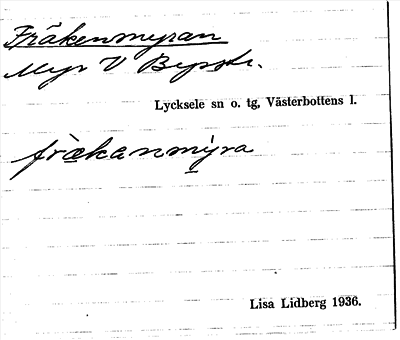 Fräkenmyran
Myr V
Lycksele sn o. tg, Västerbottens l.
frækanmýra
Lisa Lidberg 1936.